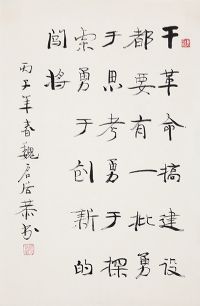 干革命搞建设
都要有一批勇
于思考勇于探
索勇于创新的
闯将
丙子年春魏启后恭书